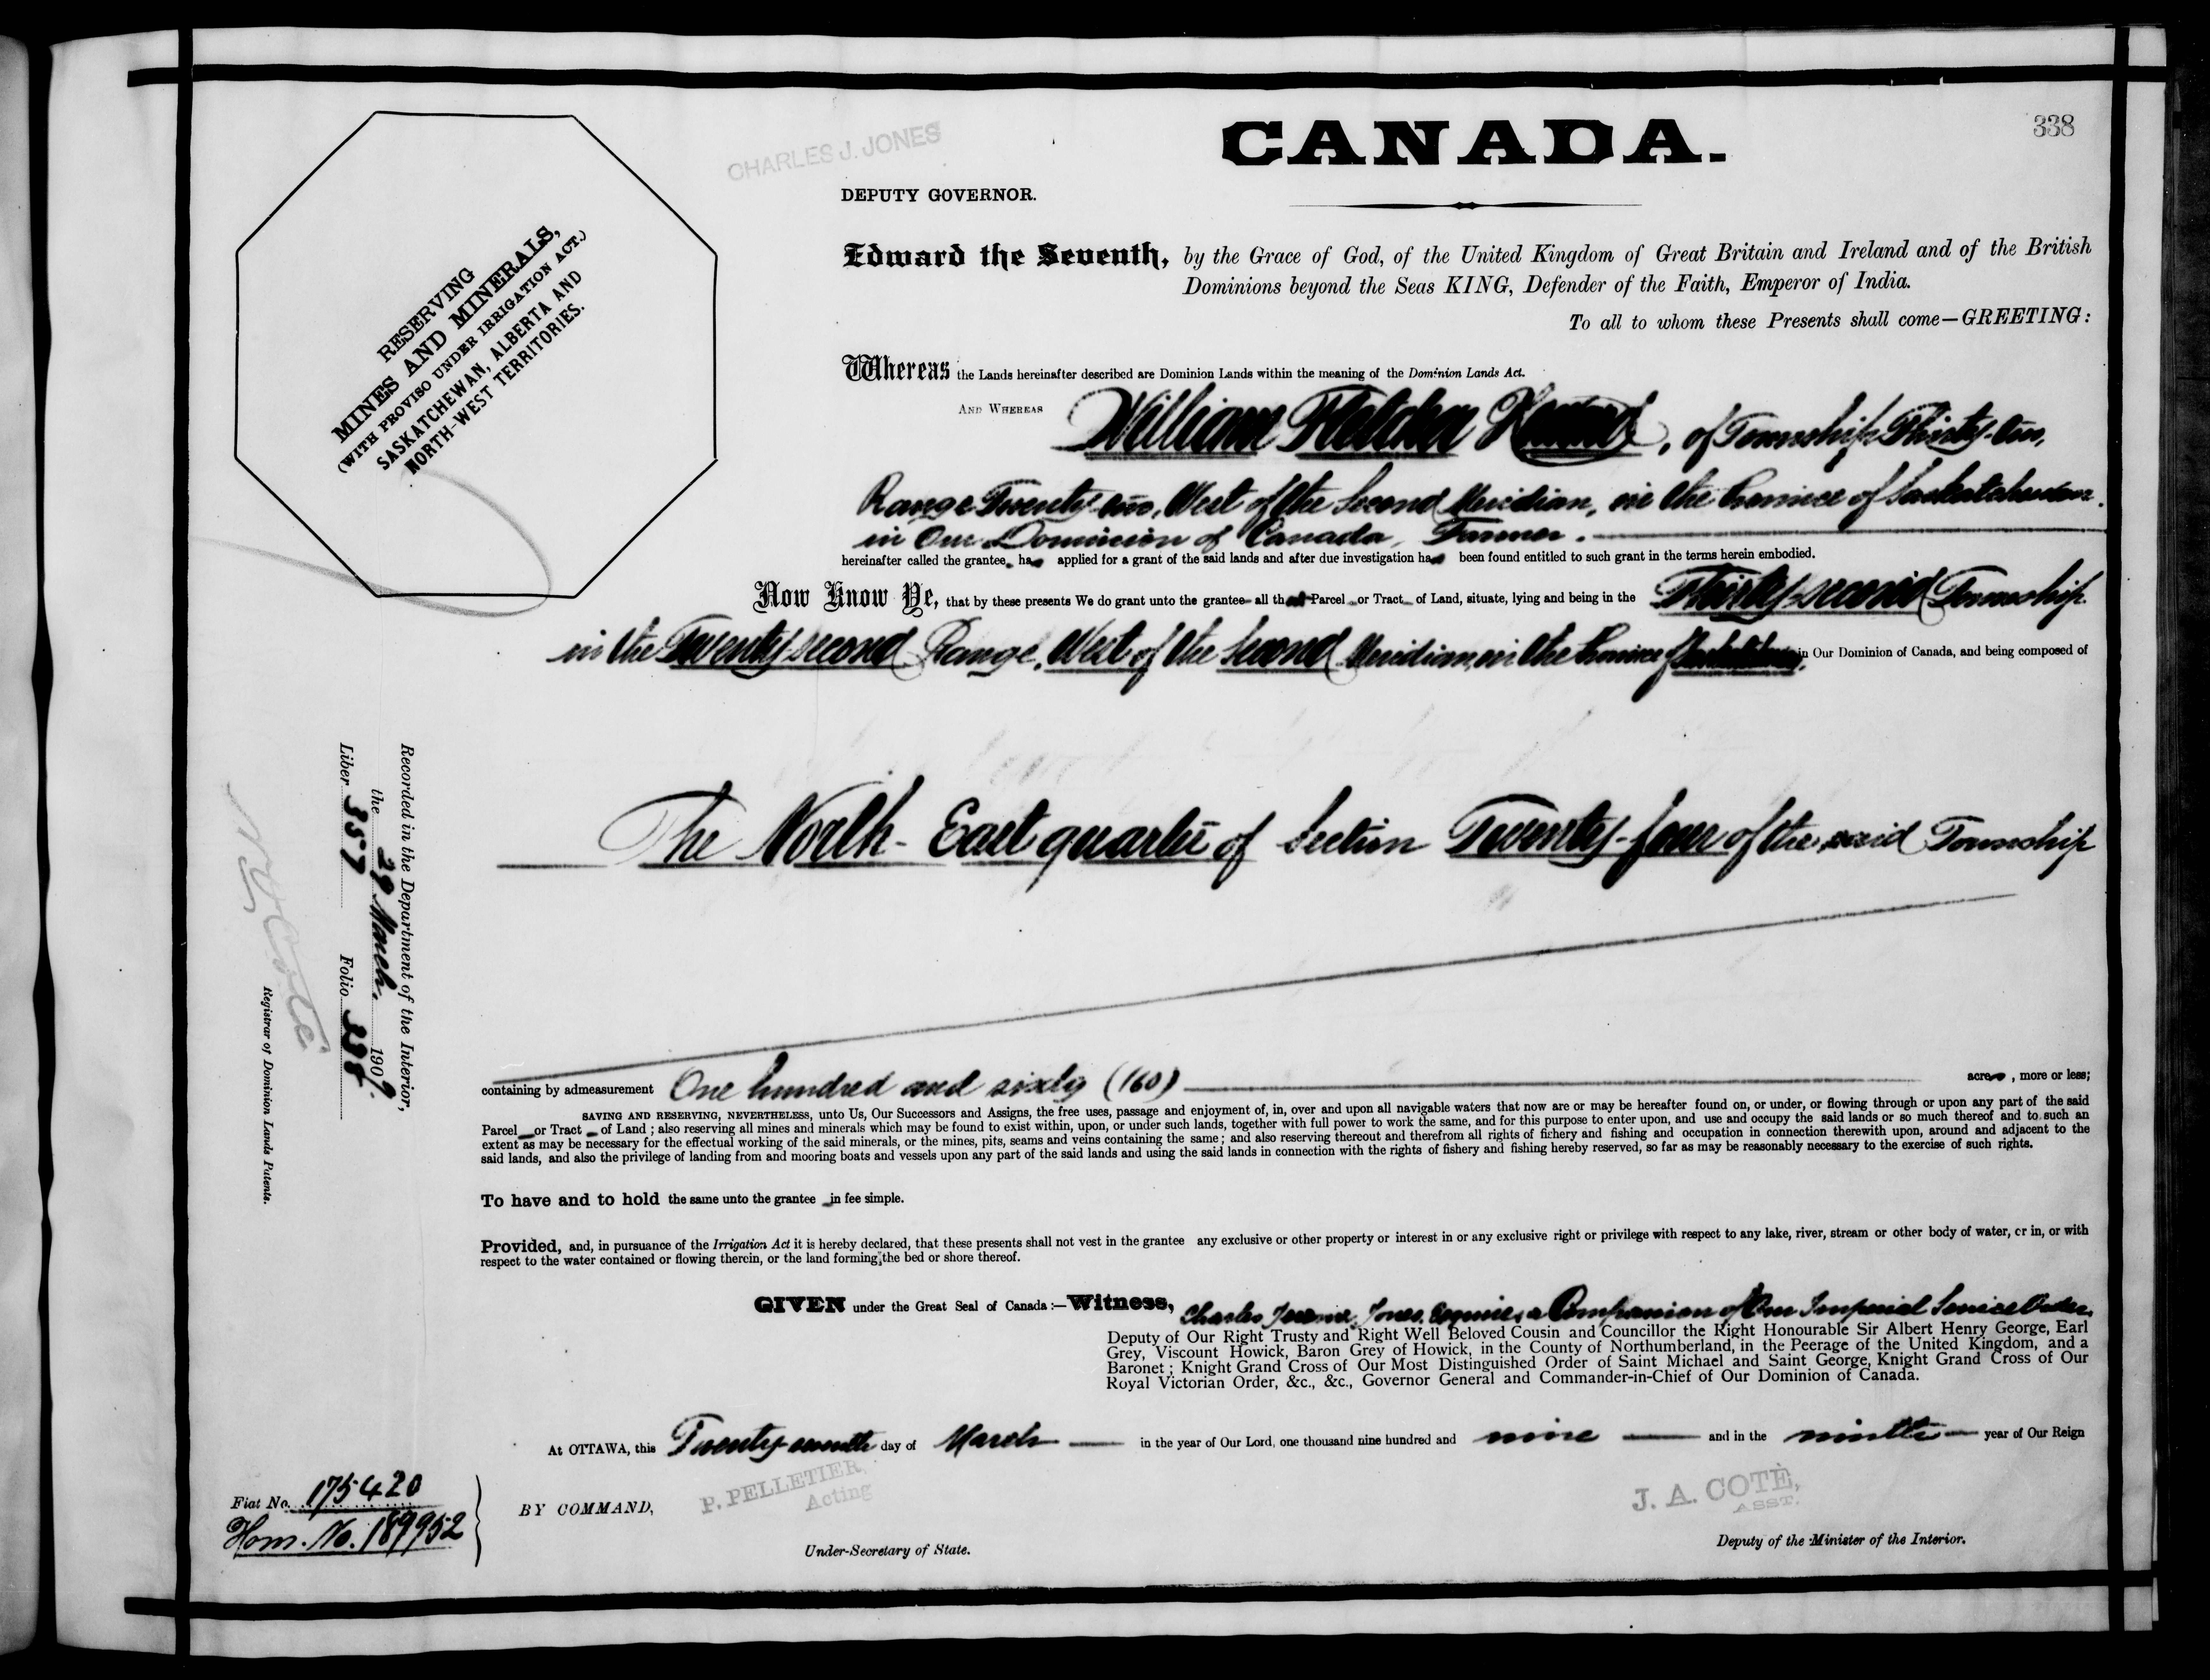 338
CHARLES J. JONES
CANADA.
DEPUTY GOVERNOR.
RESERVING
MINES AND MINERALS,
(WITH PROVISO UNDER IRRIGATION ACT.)
SASKATCHEWAN, ALBERTA AND
NORTH-WEST TERRITORIES.
Edward the Seventh, by the Grace of God, of the United Kingdom of Great Britain and Ireland and of the British
Dominions beyond the Seas KING, Defender of the Faith, Emperor of India.
To all to whom these Presents shall come—GREETING:
Whereas the Lands hereinafter described are Dominion Lands within the meaning of the Dominion Lands Act.
AND WHEREAS William Fletcher , of Township Thirty-two,
Range Twenty-two, West of the Second Meridian, in the Province of Saskatchewan
in Our Dominion of Canada, Farmer.
hereinafter called the grantee, has applied for a grant of the said lands and after due investigation has been found entitled to such grant in the terms herein embodied.
Now Know Ye, that by these presents We do grant unto the grantee all that Parcel or Tract of Land, situate, lying and being in the Thirty-second Township
in the Twenty second Range, West of the Second Meridian, in the Province of Saskatchewan, in Our Dominion of Canada, and being composed of
The North-East quarter of Section Twenty-four of the said Township
containing by admeasurement One hundred and sixty (160) acres, more or less;
SAVING AND RESERVING, NEVERTHELESS, unto Us, Our Successors and Assigns, the free uses, passage and enjoyment of, in, over and upon all navigable waters that now are or may be hereafter found on, or under, or flowing through or upon any part of the said
Parcel or Tract of Land; also reserving all mines and minerals which may be found to exist within, upon, or under such lands, together with full power to work the same, and for this purpose to enter upon, and use and occupy the said lands or so much thereof and to such an
extent as may be necessary for the effectual working of the said minerals, or the mines, pits, seams and veins containing the same; and also reserving thereout and therefrom all rights of fishery and fishing and occupation in connection therewith upon, around and adjacent to the
said lands, and also the privilege of landing from and mooring boats and vessels upon any part of the said lands and using the said lands in connection with the rights of fishery and fishing hereby reserved, so far as may be reasonably necessary to the exercise of such rights.
To have and to hold the same unto the grantee in fee simple.
Provided, and, in pursuance of the Irrigation Act it is hereby declared, that these presents shall not vest in the grantee any exclusive or other property or interest in or any exclusive right or privilege with respect to any lake, river, stream or other body of water, or in, or with
respect to the water contained or flowing therein, or the land forming the bed or shore thereof.
GIVEN under the Great Seal of Canada:—Witness, Charles Jerome Jones, Esquire, a Companion of Our Imperial Service Order,
Deputy of Our Right Trusty and Right Well Beloved Cousin and Councillor the Right Honourable Sir Albert Henry George, Earl
Grey, Viscount Howick, Baron Grey of Howick, in the County of Northumberland, in the Peerage of the United Kingdom, and a
Baronet; Knight Grand Cross of Our Most Distinguished Order of Saint Michael and Saint George, Knight Grand Cross of Our
Royal Victorian Order, &c., &c., Governor General and Commander-in-Chief of Our Dominion of Canada.
At OTTAWA, this Twenty-seventh day of March in the year of Our Lord, one thousand nine hundred and nine and in the ninth year of Our Reign
BY COMMAND,
P. PELLETIER,
Acting
Under-Secretary of State.
J. A. COTÉ,
ASST.
Deputy of the Minister of the Interior.
Fiat No. 175420
Hom. No. 189952
Recorded in the Department of the Interior,
the 29 March, 1909
Liber 357 Folio 338
N. O. Coté
Registrar of Dominion Lands Patents.